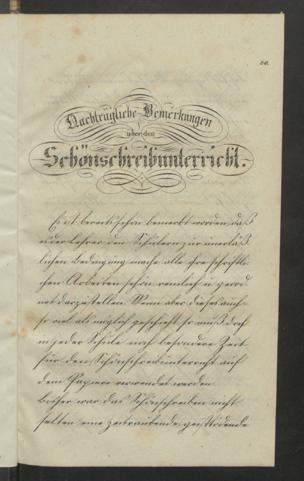 20.
Nachträgliche Bemerkungen
über den
Schönschreibunterricht.
Es ist bereits schon bemerkt worden, daß
jeder Lehrer den Schülern zur unerläß
lichen Bedingung mache alle ihre schriftli
chen Arbeiten schön reinlich u geord
net darzustellen Wenn aber dieses auch
so viel als möglich geschieht so muß doch
in jeder Schule noch besondere Zeit
für den Schönschreibunterricht auf
dem Papiere verwendet werden
Bisher war das Schönschreiben nicht
selten eine zeitraubende, geisttödende